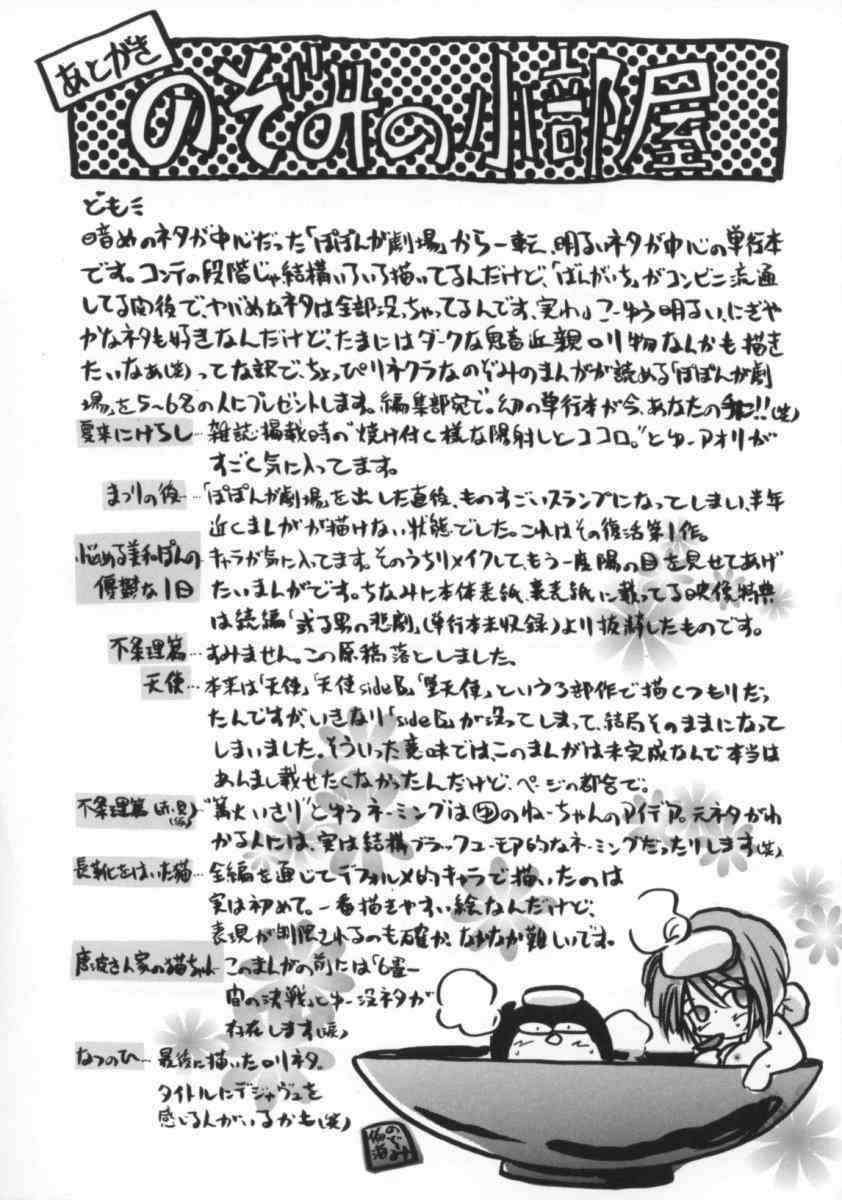 あとがき
のぞみの小部屋
どもミ
暗めのネタが中心だった「ぽぽんが劇場」から一転、明るいネタが中心の単行本
です。コンテの段階じゃ結構いろいろ描いてるんだけど、「ばんがいち」がコンビニ流通
してる関係で、ヤバめなネタは全部没っちゃってるんです、実わ。こーゆう明るい、にぎや
かなネタも好きなんだけど、たまにはダークな鬼畜近親ロリ物なんかも描き
たいなあ(笑)ってな訳で、ちょっぴりネクラなのぞみのまんがが読める「ぽぽんが劇
場」を5〜6名の人にプレゼントします。編集部宛で。幻の単行本が今、あなたの手に!!(笑)
夏来にけらし…雑誌掲載時の“焼け付く様な陽射しとココロ。”とゆーアオリが
すごく気に入ってます。
まつりの後…「ぽぽんが劇場」を出した直後、ものすごいスランプになってしまい、半年
近くまんがが描けない状態でした。これはその復活第1作。
悩める美和ぽんの
優鬱な1日
キャラが気に入ってます。そのうちリメイクして、もう一度陽の目を見せてあげ
たいまんがです。ちなみに本体表紙、裏表紙に載ってる映像特典
は続編「或る男の悲劇」(単行本未収録)より抜粋したものです。
不条理篇…すみません。この原稿落としました。
天使…本来は「天使」「天使sideB」「堕天使」という3部作で描くつもりだっ
たんですが、いきなり「sideB」が没ってしまって、結局そのままになって
しまいました。そういった意味では、このまんがは未完成なんで本当は
あんまし載せたくなかったんだけど、ページの都合で。
不条理篇 …“篝火いさり”とゆうネーミングは ゆ のねーちゃんのアイデア。元ネタがわ
かる人には、実は結構ブラックユーモア的なネーミングだったりします(笑)
長靴をはいた猫…全編を通じてデフォルメ的キャラで描いたのは
実は初めて。一番描きやすい絵なんだけど、
表現が制限されるのも確か。なかなか難しいです。
さん家の猫ちゃん…このまんがの前には「6畳一
間の決戦」とゆー没ネタが
存在します(涙)
なつのひ…最後に描いたロリネタ。
タイトルにデジャヴュを
感じる人がいるかも(笑)
のぞみ